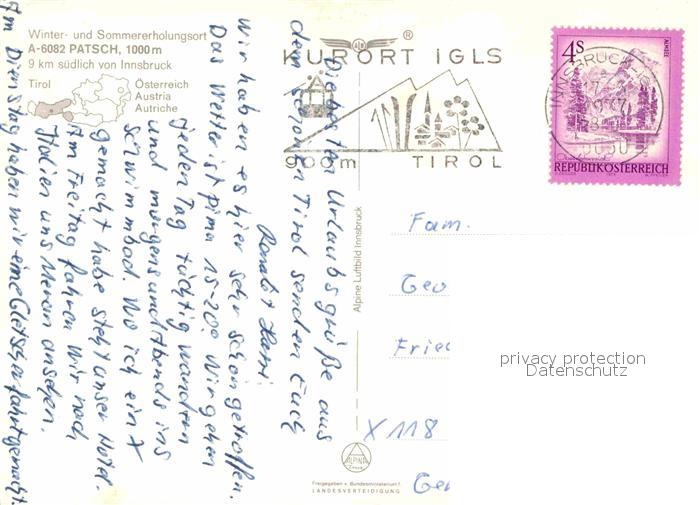 Winter- und Sommererholungsort
A-6082 PATSCH, 1000 m
9 km südlich von Innsbruck
Tirol
Österreich
Austria
Autriche
KURORT IGLS
900m TIROL
4S
REPUBLIK ÖSTERREICH
INNSBRUCK
Die besten Urlaubsgrüße aus
dem schönen Tirol senden Euch
Wir haben es hier sehr schön getroffen.
Das Wetter ist prima 15-20° Wir gehen
jeden Tag tüchtig wandern
und morgens und Abends ins
Schwimmbad. Wo ich ein X
gemacht habe steht unser Hotel.
Am Freitag fahren wir nach
Italien uns Meran ansehen.
Am Dienstag haben wir eine Gletscherfahrt gemacht.
Alpine Luftbild Innsbruck
Fam.
Geo
Frie
X 118
Ger
privacy protection
Datenschutz
ALPINA
Freigegeben v. Bundesministerium f.
LANDESVERTEIDIGUNG